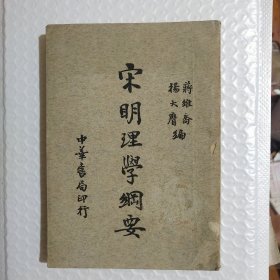 蔣維喬
楊大膺編
宋明理學綱要
中華書局印行